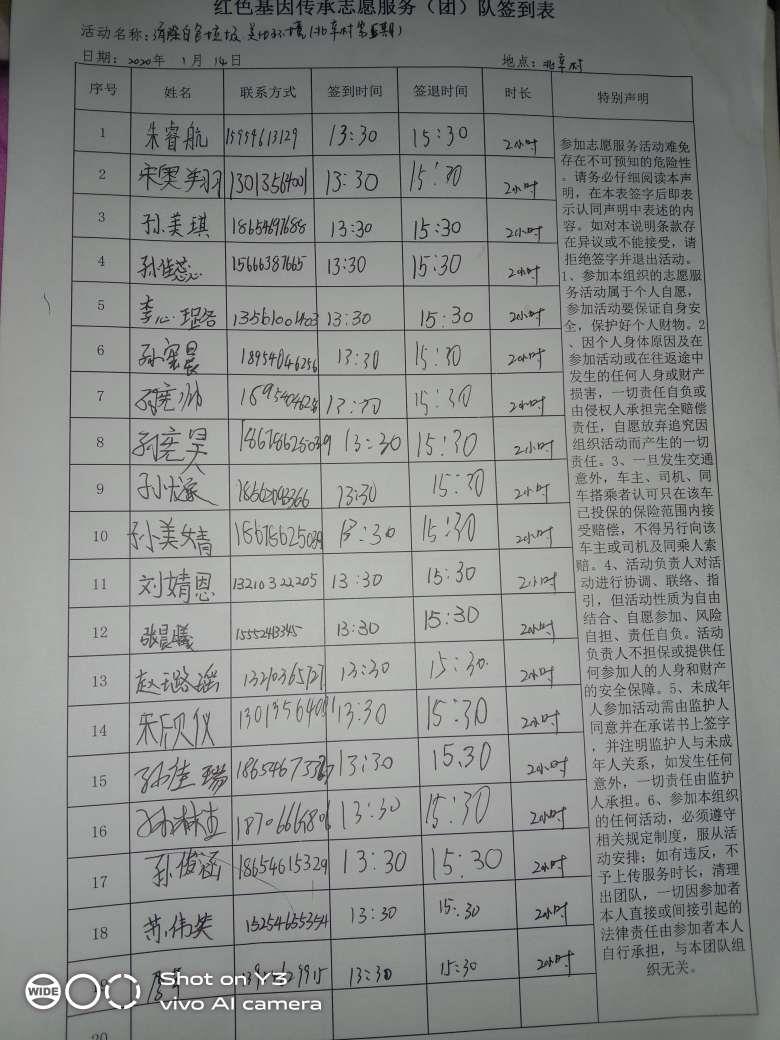 红色基因传承志愿服务（团）队签到表
活动名称：清除白色垃圾 美化环境（北辛村第五期）
日期：2020年 1月 14日 地点：北辛村
序号 姓名 联系方式 签到时间 签退时间 时长 特别声明
1 朱睿航 15954613129 13:30 15:30 2小时
2 宋奥翔 13013564001 13:30 15:30 2小时
3 孙美琪 18654697688 13:30 15:30 2小时
4 孙佳蕊 15666387665 13:30 15:30 2小时
5 李心 13561001403 13:30 15:30 2小时
6 18954046256 13:30 15:30 2小时
7 13:30 15:30 2小时
8 18678625039 13:30 15:30 2小时
9 13:30 15:30 2小时
10 孙美婧 18678625039 13:30 15:30 2小时
11 刘婧恩 13210322205 13:30 15:30 2小时
12 张晨曦 13:30 15:30 2小时
13 赵璐瑶 13210365727 13:30 15:30 2小时
14 宋欣仪 13:30 15:30 2小时
15 孙佳瑞 13:30 15:30 2小时
16 13:30 15:30 2小时
17 孙俊涵 18654615329 13:30 15:30 2小时
18 苏伟英 15254655354 13:30 15:30 2小时
19 13:30 15:30 2小时
20
参加志愿服务活动难免
存在不可预知的危险性
。请务必仔细阅读本声
明，在本表签字后即表
示认同声明中表述的内
容。如对本说明条款存
在异议或不能接受，请
拒绝签字并退出活动。
1、参加本组织的志愿服
务活动属于个人自愿，
参加活动要保证自身安
全，保护好个人财物。2
、因个人身体原因及在
参加活动或在往返途中
发生的任何人身或财产
损害，一切责任自负或
由侵权人承担完全赔偿
责任，自愿放弃追究因
组织活动而产生的一切
责任。3、一旦发生交通
意外，车主、司机、同
车搭乘者认可只在该车
已投保的保险范围内接
受赔偿，不得另行向该
车主或司机及同乘人索
赔。4、活动负责人对活
动进行协调、联络、指
引，但活动性质为自由
结合、自愿参加、风险
自担、责任自负。活动
负责人不担保或提供任
何参加人的人身和财产
的安全保障。5、未成年
人参加活动需由监护人
同意并在承诺书上签字
，并注明监护人与未成
年人关系，如发生任何
意外，一切责任由监护
人承担。6、参加本组织
的任何活动，必须遵守
相关规定制度，服从活
动安排；如有违反，不
予上传服务时长，清理
出团队，一切因参加者
本人直接或间接引起的
法律责任由参加者本人
自行承担，与本团队组
织无关。
WIDE
Shot on Y3
vivo AI camera